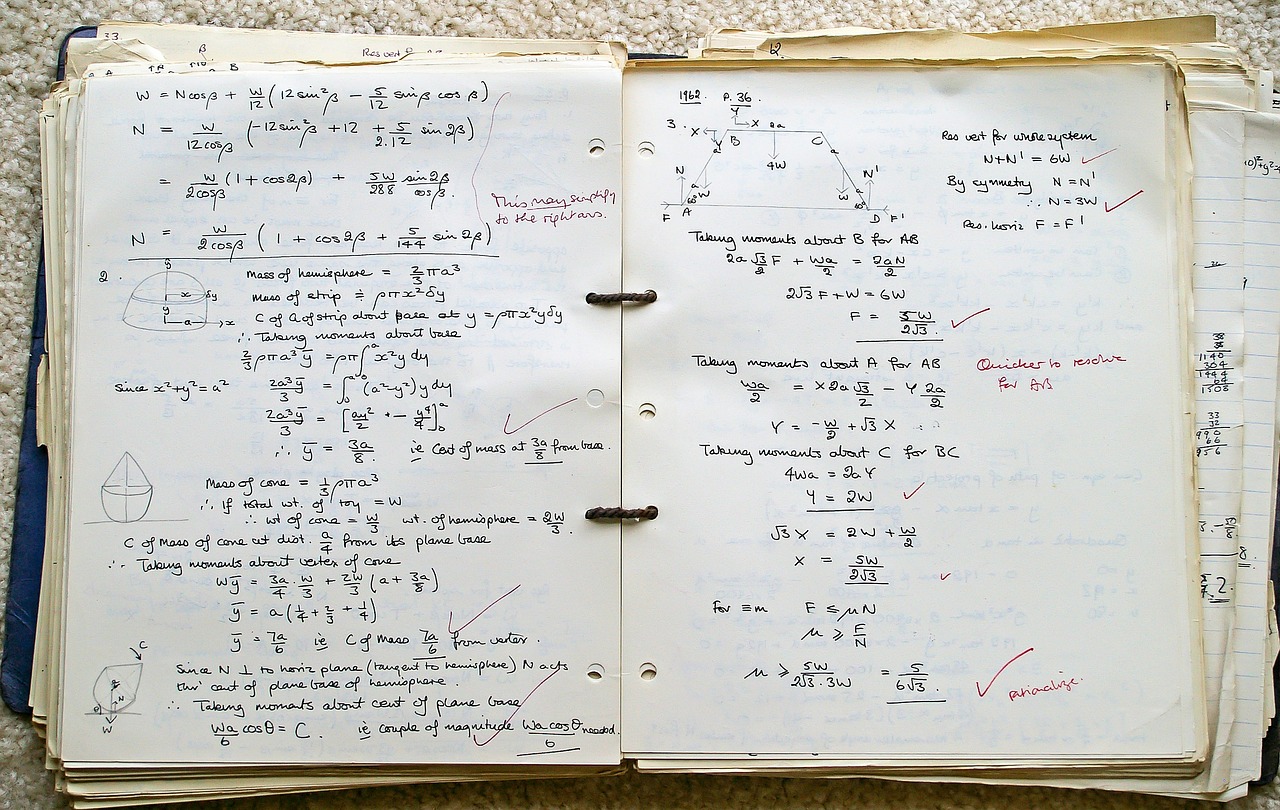 33.
β
Res vert
A B
W = N cosβ + W/12 (12 sin²β − 5/12 sinβ cosβ)
N = W/12cosβ (−12 sin²β + 12 + 5/2.12 sin 2β)
= W/2cosβ (1 + cos2β) + 5W/288 sin2β/cosβ.
This may simplify
to the right ans.
N = W/2cosβ (1 + cos 2β + 5/144 sin 2β)
2.
y
x δy
y
a x
Mass of hemisphere = 2/3 πa³
Mass of strip ≏ ρπx²δy
C of G of strip about base at y = ρπx²yδy
∴ Taking moments about base
2/3 ρπa³ȳ = ρπ∫₀ᵃ x²y dy
Since x²+y²=a² 2a³ȳ/3 = ∫₀ᵃ (a²−y²) y dy
2a³ȳ/3 = [ay²/2 − y⁴/4]₀ᵃ
∴ ȳ = 3a/8 ie Cent of mass at 3a/8 from base.
Mass of cone = 1/3 ρπa³
∴ If total wt. of toy = W
∴ wt of cone = W/3 wt. of hemisphere = 2W/3.
C of Mass of cone at dist. a/4 from its plane base
∴ Taking moments about vertex of cone
Wȳ = 3a/4 . W/3 + 2W/3 (a + 3a/8)
ȳ = a(1/4 + 2/3 + 1/4)
ȳ = 7a/6 ie C of Mass 7a/6 from vertex.
C
θ
N
W
Since N ⊥ to horiz plane (tangent to hemisphere) N acts
thro' cent of plane base of hemisphere.
∴ Taking moments about cent of plane base
Wa/6 cosθ = C. ie couple of magnitude Wa cosθ/6 needed.
12.
1962. P. 36.
Y
3. X B X 2a C
Y a 4W a
N a W W a N'
60° 60°
F A D F'
Res vert for whole system
N+N' = 6W
By symmetry N = N'
∴ N = 3W
Res. horiz F = F'
Taking moments about B for AB
2a √3/2 F + Wa/2 = 2aN/2
2√3 F + W = 6W
F = 5W/2√3.
Taking moments about A for AB
Quicker to resolve
for AB
Wa/2 = X 2a √3/2 − Y 2a/2
Y = −W/2 + √3 X
Taking moments about C for BC
4Wa = 2aY
Y = 2W
√3 X = 2W + W/2
X = 5W/2√3
For ≡m F ≤ μN
μ ≥ F/N
μ ≥ 5W/2√3.3W = 5/6√3.
rationalize.
38
38
1140
304
1444
64
1508
33
32
990
66
956